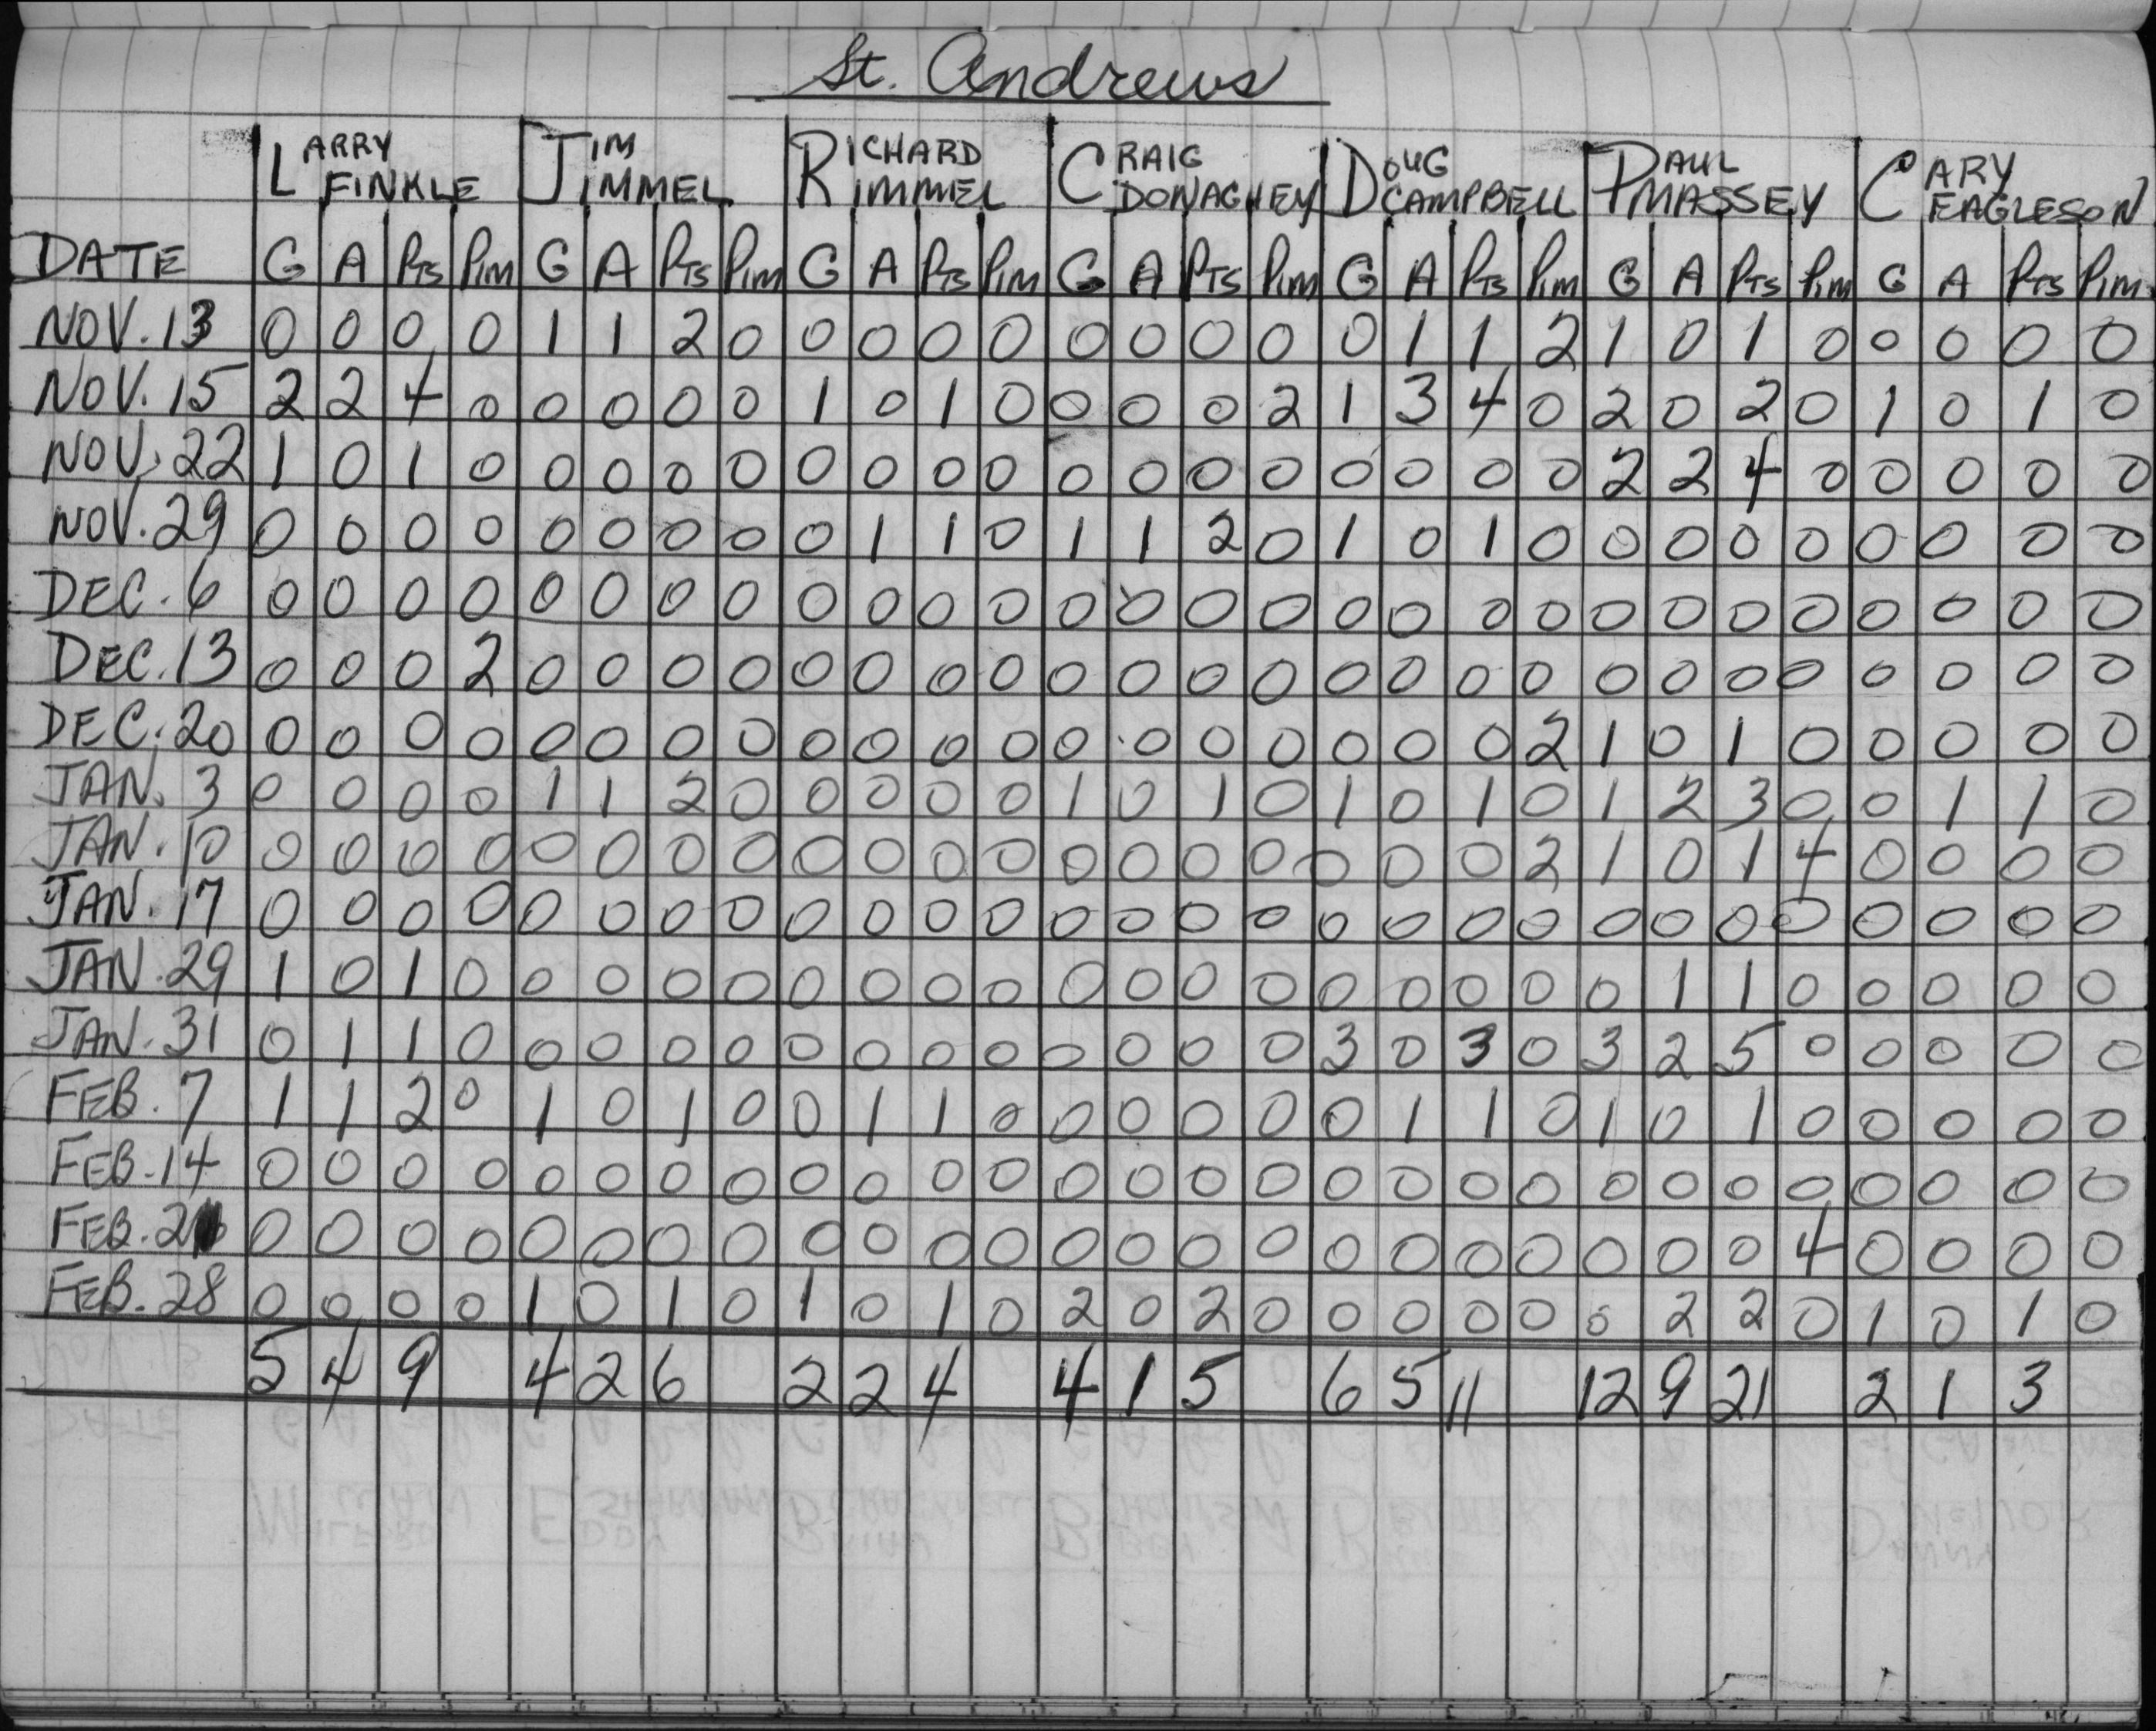 St. Andrews
LARRY FINKLE JIM JIMMEL RICHARD RIMMEL CRAIG DONAGHEY DOUG CAMPBELL PAUL MASSEY CARY EAGLESON
DATE G A PTS PIM G A PTS PIM G A PTS PIM G A PTS PIM G A PTS PIM G A PTS PIM G A PTS PIM
NOV. 13 0 0 0 0 1 1 2 0 0 0 0 0 0 0 0 0 0 1 1 2 1 0 1 0 0 0 0 0
NOV. 15 2 2 4 0 0 0 0 0 1 0 1 0 0 0 0 2 1 3 4 0 2 0 2 0 1 0 1 0
NOV. 22 1 0 1 0 0 0 0 0 0 0 0 0 0 0 0 0 0 0 0 0 2 2 4 0 0 0 0 0
NOV. 29 0 0 0 0 0 0 0 0 0 1 1 0 1 1 2 0 1 0 1 0 0 0 0 0 0 0 0 0
DEC. 6 0 0 0 0 0 0 0 0 0 0 0 0 0 0 0 0 0 0 0 0 0 0 0 0 0 0 0 0
DEC. 13 0 0 0 2 0 0 0 0 0 0 0 0 0 0 0 0 0 0 0 0 0 0 0 0 0 0 0 0
DEC. 20 0 0 0 0 0 0 0 0 0 0 0 0 0 0 0 0 0 0 0 2 1 0 1 0 0 0 0 0
JAN. 3 0 0 0 0 1 1 2 0 0 0 0 0 1 0 1 0 1 0 1 0 1 2 3 0 0 1 1 0
JAN. 10 0 0 0 0 0 0 0 0 0 0 0 0 0 0 0 0 0 0 0 2 1 0 1 4 0 0 0 0
JAN. 17 0 0 0 0 0 0 0 0 0 0 0 0 0 0 0 0 0 0 0 0 0 0 0 0 0 0 0 0
JAN. 29 1 0 1 0 0 0 0 0 0 0 0 0 0 0 0 0 0 0 0 0 0 1 1 0 0 0 0 0
JAN. 31 0 1 1 0 0 0 0 0 0 0 0 0 0 0 0 0 3 0 3 0 3 2 5 0 0 0 0 0
FEB. 7 1 1 2 0 1 0 1 0 0 1 1 0 0 0 0 0 0 1 1 0 1 0 1 0 0 0 0 0
FEB. 14 0 0 0 0 0 0 0 0 0 0 0 0 0 0 0 0 0 0 0 0 0 0 0 0 0 0 0 0
FEB. 21 0 0 0 0 0 0 0 0 0 0 0 0 0 0 0 0 0 0 0 0 0 0 0 4 0 0 0 0
FEB. 28 0 0 0 0 1 0 1 0 1 0 1 0 2 0 2 0 0 0 0 0 0 2 2 0 1 0 1 0
5 4 9 4 2 6 2 2 4 4 1 5 6 5 11 12 9 21 2 1 3